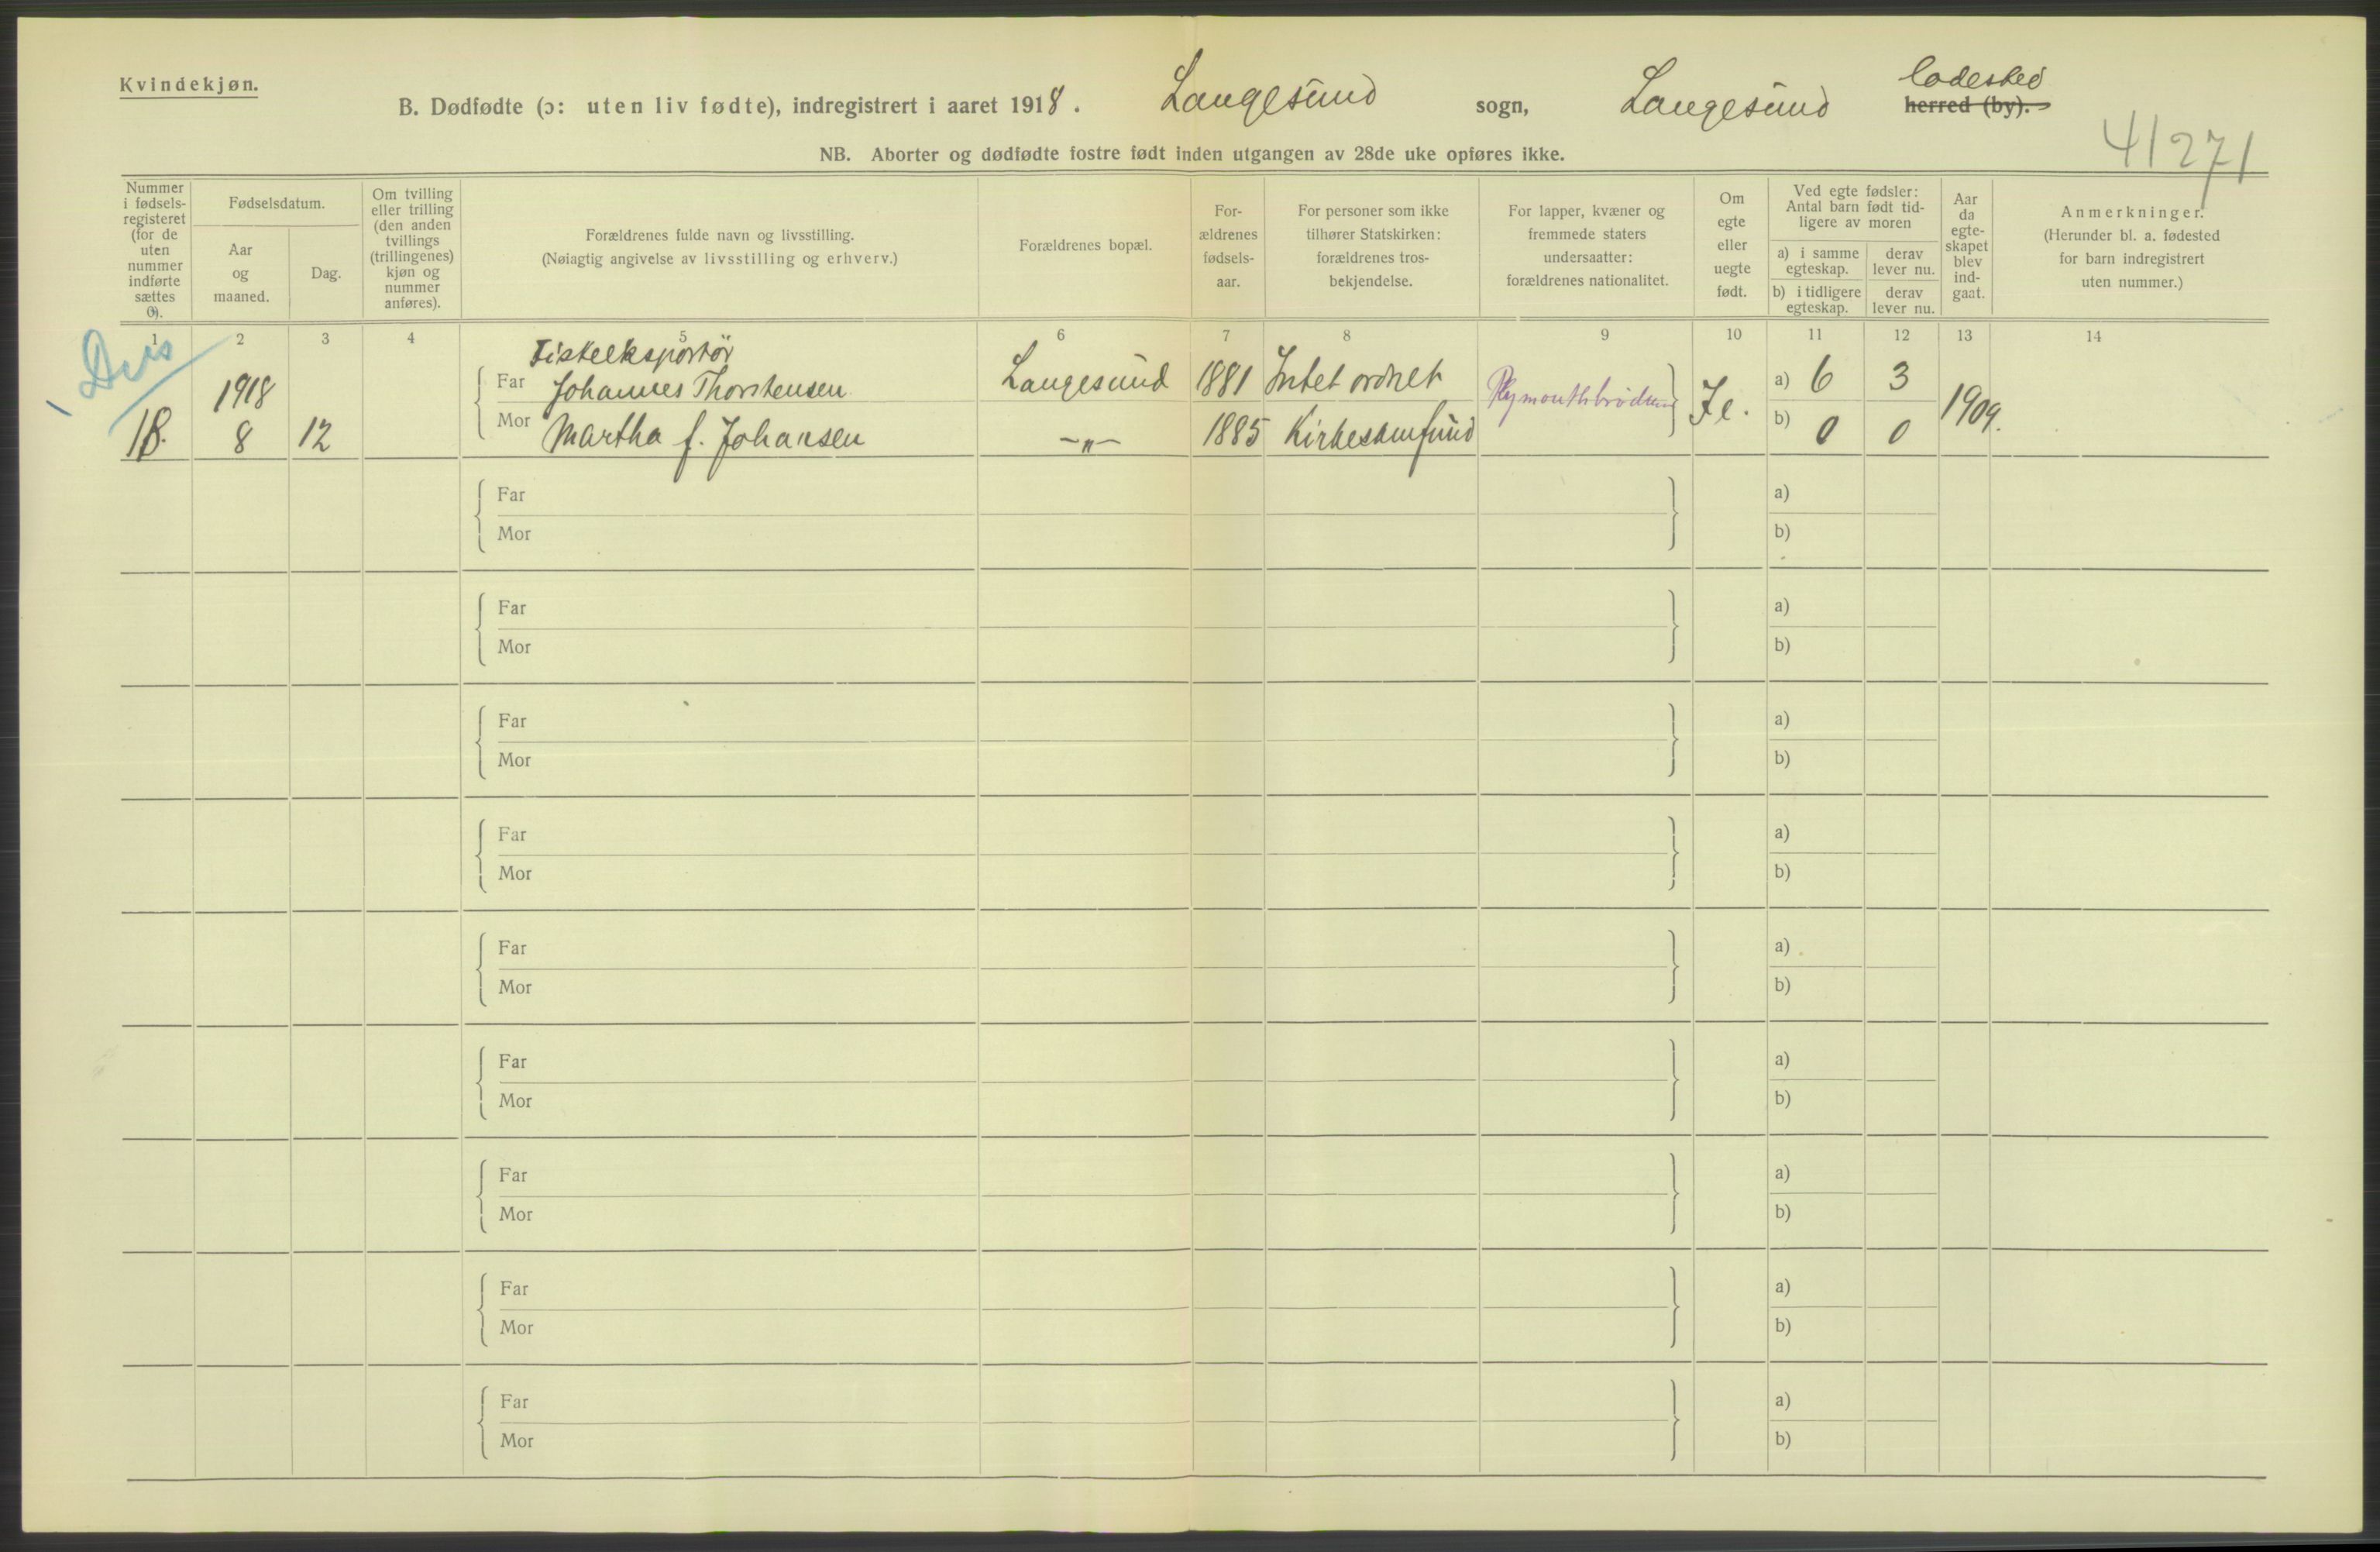 Kvindekjøn.
B. Dødfødte (ɔ: uten liv fødte), indregistrert i aaret 1918. Langesund sogn, Langesund ladested herred (by).
41271
NB. Aborter og dødfødte fostre født inden utgangen av 28de uke opføres ikke.
Nummer i fødsels-registeret (for de uten nummer indførte sættes 0).
Fødselsdatum.
Aar og maaned.
Dag.
Om tvilling eller trilling (den anden tvillings (trillingenes) kjøn og nummer anføres).
Forældrenes fulde navn og livsstilling.
(Nøiagtig angivelse av livsstilling og erhverv.)
Forældrenes bopæl.
For-ældrenes fødsels-aar.
For personer som ikke tilhører Statskirken: forældrenes tros-bekjendelse.
For lapper, kvæner og fremmede staters undersaatter: forældrenes nationalitet.
Om egte eller uegte født.
Ved egte fødsler: Antal barn født tid-ligere av moren
a) i samme egteskap.
derav lever nu.
b) i tidligere egteskap.
derav lever nu.
Aar da egte-skapet blev ind-gaat.
Anmerkninger.
(Herunder bl. a. fødested for barn indregistrert uten nummer.)
1 2 3 4 5 6 7 8 9 10 11 12 13 14
Fiskeeksportør
1918 Far Johannes Thorstensen Langesund 1881 Intet ordnet Plymouthbrødrene Je. a) 6 3 1909.
18. 8 12 Mor Martha f. Johansen —„— 1885 Kirkesamfund b) 0 0
Far a)
Mor b)
Far a)
Mor b)
Far a)
Mor b)
Far a)
Mor b)
Far a)
Mor b)
Far a)
Mor b)
Far a)
Mor b)
Far a)
Mor b)
Far a)
Mor b)